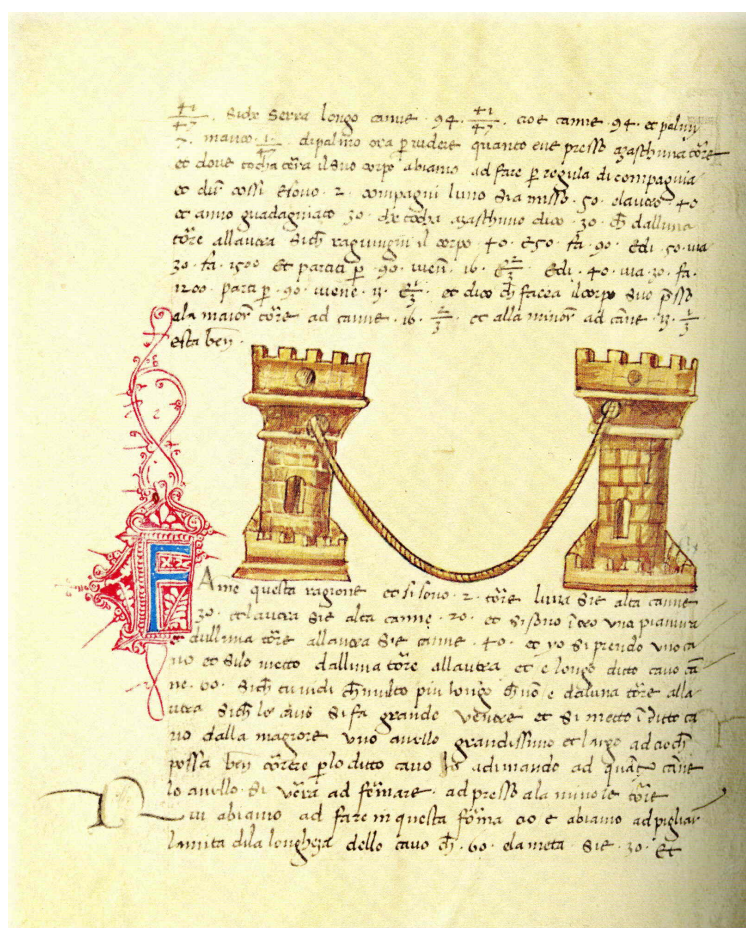 41/47. Sicħ serra longo canne · 94 · 41/47 · cioe canne · 94 · et palmj
7 · manco · 1/47 · di palmo ora ꝑ videre quanto eve presso chaschuna tōre
et dove tocħa tēra il suo corpo abiamo ad fare ꝑ regula di compagnia
et dirr cossi e sono · 2 · compagni luno sia misso · 50 · e lavero 40
et anno guadagniato 30 · che tocħa chaschuno dico · 30 · cħ dalluna
tōre allautra sicħ ragiungni il corpo · 40 · e 50 · fa · 90 · e di · 50 · via
30 · fa · 1500 et partiti ꝑ · 90 · vien · 16 · e 2/3 · e di · 40 · via · 30 · fa ·
1200 · parti ꝑ · 90 · viene · 13 · e 1/3 · et dico cħ facea il corpo suo presso
ala maior tōre ad canne · 16 · 2/3 · et alla minor ad cāne · 13 · 1/3
esta ben ·
F Ame questa ragione et si sono · 2 · tōre luna sie alta canne
30 · et lautra sie alta canne · 20 · et si sono īcero una pianura
e dalluna tōre allautra sie canne · 40 · et yo si prendo uno ca
no et si lo metto dalluna tōre allautra et e longo ditto cavo cā
ne · 60 · sicħ tu vidi cħ multo piu longo cħ nō e daluna tōre alla
utra sicħ lo cavo si fa grande ventre et si metto ī ditto ca
vo dalla magiore uno anello grandissimo et largo adciocħ
possa ben cōrere ꝑ lo ditto cavo adimando ad quāte cāne
lo anello si vēra ad fermare · ad presso ala minore tōre
Qui abiamo ad fare in questa forma cio e abiamo ad pigliar
lamita dila longheza dello cavo cħ · 60 · ela meta sie · 30 · et